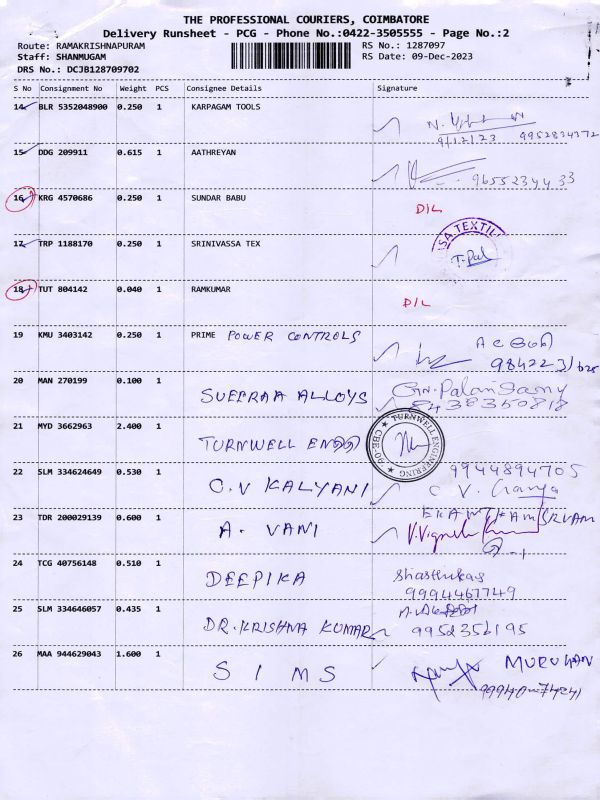 THE PROFESSIONAL COURIERS, COIMBATORE
Delivery Runsheet - PCG - Phone No.:0422-3505555 - Page No.:2
Route: RAMAKRISHNAPURAM RS No.: 1287097
Staff: SHANMUGAM RS Date: 09-Dec-2023
DRS No.: DCJB128709702
S No Consignment No Weight PCS Consignee Details Signature
14 BLR 5352048900 0.250 1 KARPAGAM TOOLS
9/12/23 9952834372
15 DDG 209911 0.615 1 AATHREYAN 9655234433
16 KRG 4570686 0.250 1 SUNDAR BABU D/L
17 TRP 1188170 0.250 1 SRINIVASSA TEX
SA TEXTIL
T. Pal
18 TUT 804142 0.040 1 RAMKUMAR D/L
19 KMU 3403142 0.250 1 PRIME POWER CONTROLS
98422 31
20 MAN 270199 0.100 1 SUEERAA ALLOYS
21 MYD 3662963 2.400 1 TURNWELL
TURNWELL ENGINEERING
22 SLM 334624649 0.530 1 C.V KALYANI
9944894705
C V.
23 TDR 200029139 0.600 1 A. VANI
24 TCG 40756148 0.510 1 DEEPIKA
9994467749
25 SLM 334646057 0.435 1 DR.KRISHNA KUMAR
9952356195
26 MAA 944629043 1.600 1 SIMS
MURUGAN
99940-74241